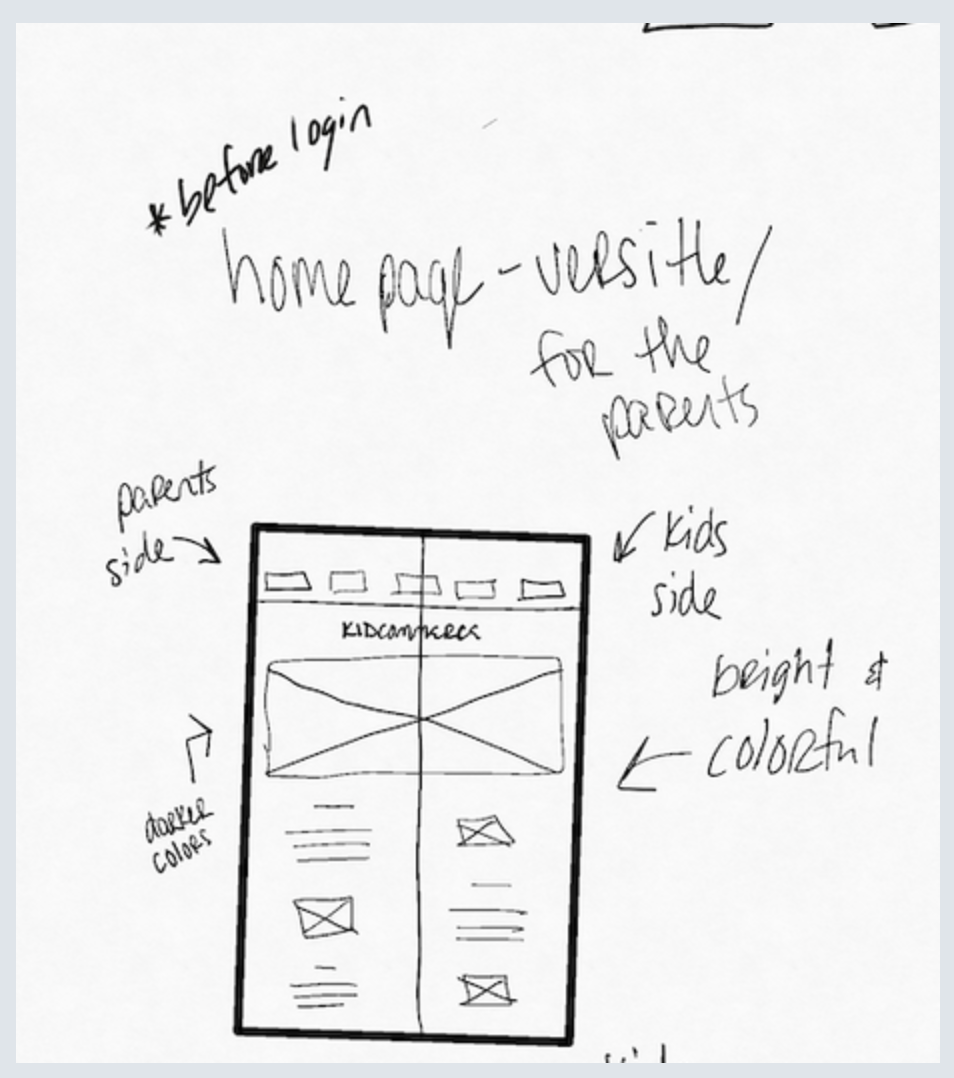 *before login
home page - versitle/
for the
parents
parents
side
kids
side
KIDCOMMERCE
bright &
colorful
darker
colors